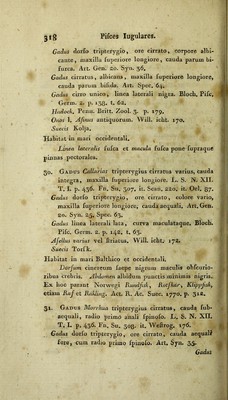 318 Pisces Iugulares.
Gadus dorso tripterygio, ore cirrato, corpore albi-
cante, maxilla superiore longiore, cauda parum bi-
furca. Art. Gen. 20. Syn. 36.
Gadus cirratus, albicans, maxilla superiore longiore,
cauda parum bifida. Art. Spec. 64.
Gadus cirro unico, linea laterali nigra. Bloch. Pisc.
Germ. 2. p. 138. t. 62.
Hadock, Penn. Britt. Zool. 3. p. 179.
Onos s. Asinus antiquorum. Will. icht. 170.
Suecis Kolja.
Habitat in mari occidentali.
Linea lateralis fusca et macula fusca pone supraque
pinnas pectorales.
30. Gadus Callarias tripterygius cirratus varius, cauda
integra, maxilla superiore longiore. L. S. N. XII.
T. I. p. 436. Fn. Sn. 307. it. Scan. 220. it. Oel. 87.
Gadus dorso tripterygio, ore cirrato, colore vario,
maxilla superiore longiore, cauda aequali. Art. Gen.
20. Syn. 35. Spec. 63.
Gadus linea laterali lata, curva maculataque. Bloch.
Pisc. Germ. 2. p. 142. t. 63.
Asellus varius vel striatus. Will. icht. 172.
Suecis Torsk.
Habitat in mari Balthico et occidentali.
Dorsum cinereum saepe nigrum maculis obscurio-
ribus crebris. Abdomen albidum punctis minimis nigris.
Ex hoc parant Norwegi Rundfisk, Rotskar, Klippfisk,
etiam Raf et Rakling. Act. R. Ac. Suec. 1770. p. 312.
31. Gadus Morrhua tripterygius cirratus, cauda sub-
aequali, radio primo anali spinoso. L. S. N. XII.
T. I. p. 436. Fn. Sn. 308. it. Westrog. 176.
Gadus dorso tripterygio, ore cirrato, cauda aequali
fere, cum radio primo spinoso. Art. Syn. 35.
Gadus